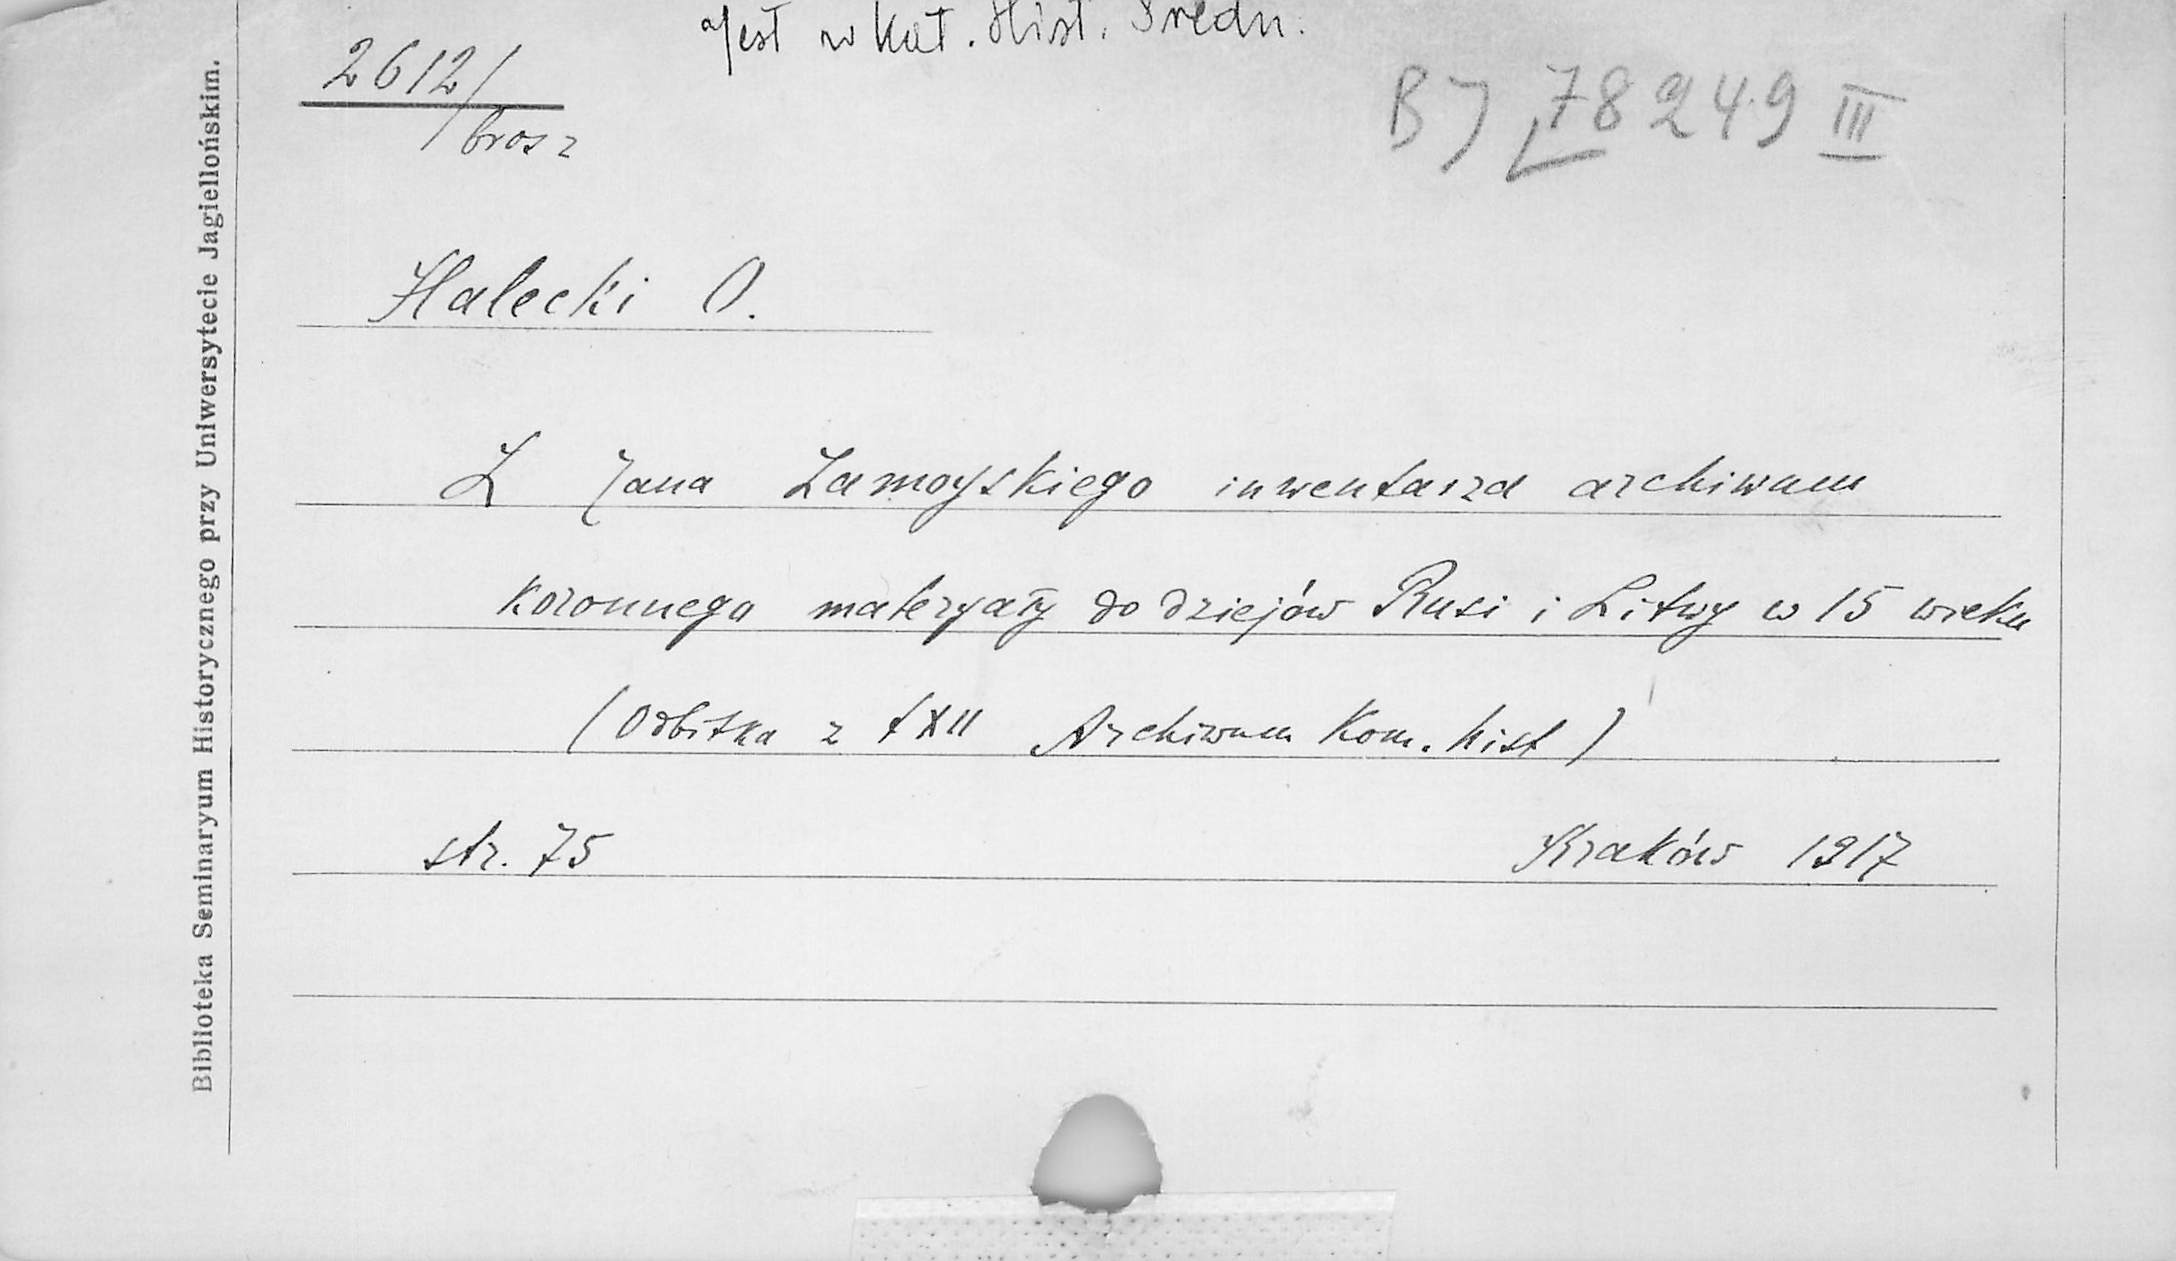 Jest w Kat. Hist. Średn.
2612/
brosz
BJ 78249 III
Halecki O.
Z Jana Zamoyskiego inwentarza archiwum
Koronnego materyały do dziejów Rusi i Litwy w 15 wieku
(Odbitka z t XII Archiwum Kom. hist)
str. 75 Kraków 1917
Biblioteka Seminaryum Historycznego przy Uniwersytecie Jagiellońskim.